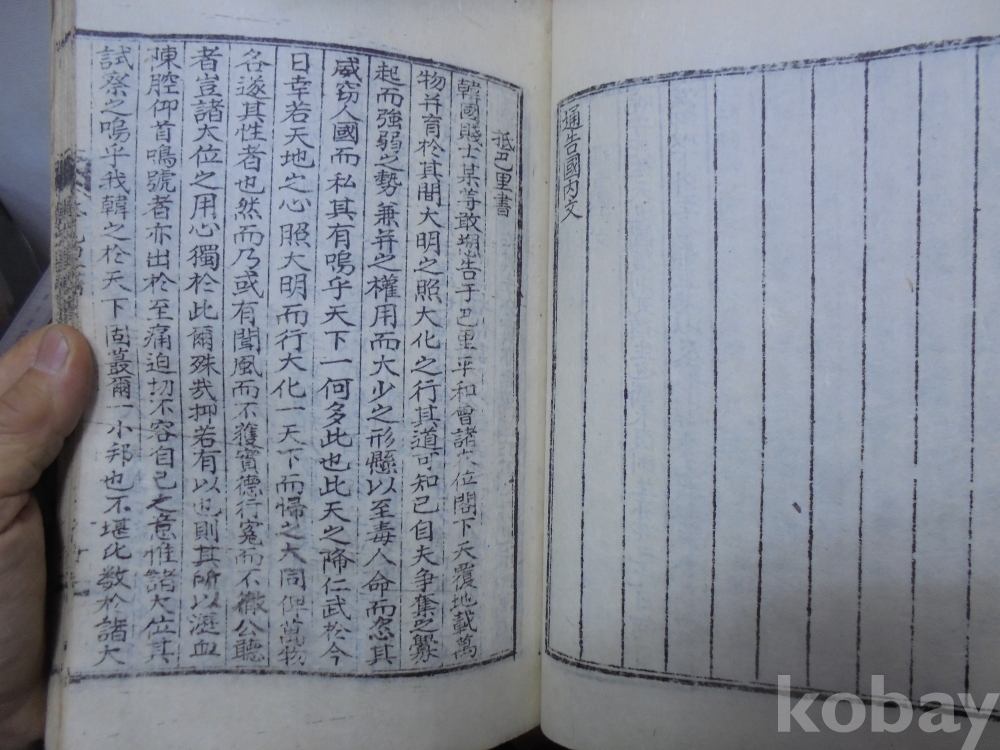 通告國內文
抵巴里書
韓國賤士某等敢塑告于巴里平和會諸大位閤下天覆地載萬
物幷育於其間大明之照大化之行其道可知已自夫争奪之釁
起而強弱之勢兼并之權用而大少之形懸以至毒人命而恣其
威窃人國而私其有嗚乎天下一何多此也此天之降仁武於今
日幸若天地之心照大明而行大化一天下而歸之大同俾萬物
各遂其性者也然而乃或有聞風而不獲實德行寃而不徹公聽
者豈諸大位之用心獨於此爾殊㢤抑若有以也則其所以瀝血
陳腔仰首鳴號者亦出於至痛迫切不容自已之意惟諸大位其
試察之嗚乎我韓之於天下固蕞爾一小邦也不堪比数於諸大
kobay